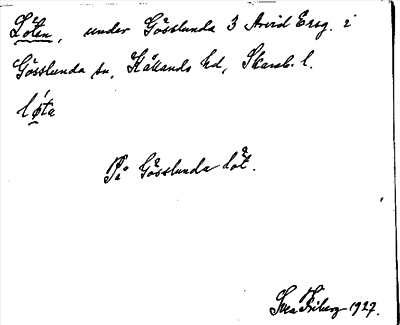 Löten, under Gösslunda 3 Arvid Ersg. i
Gösslunda sn, Kållands hd, Skarab. l.
løta
På Gösslunda löt.
Friberg 1927.